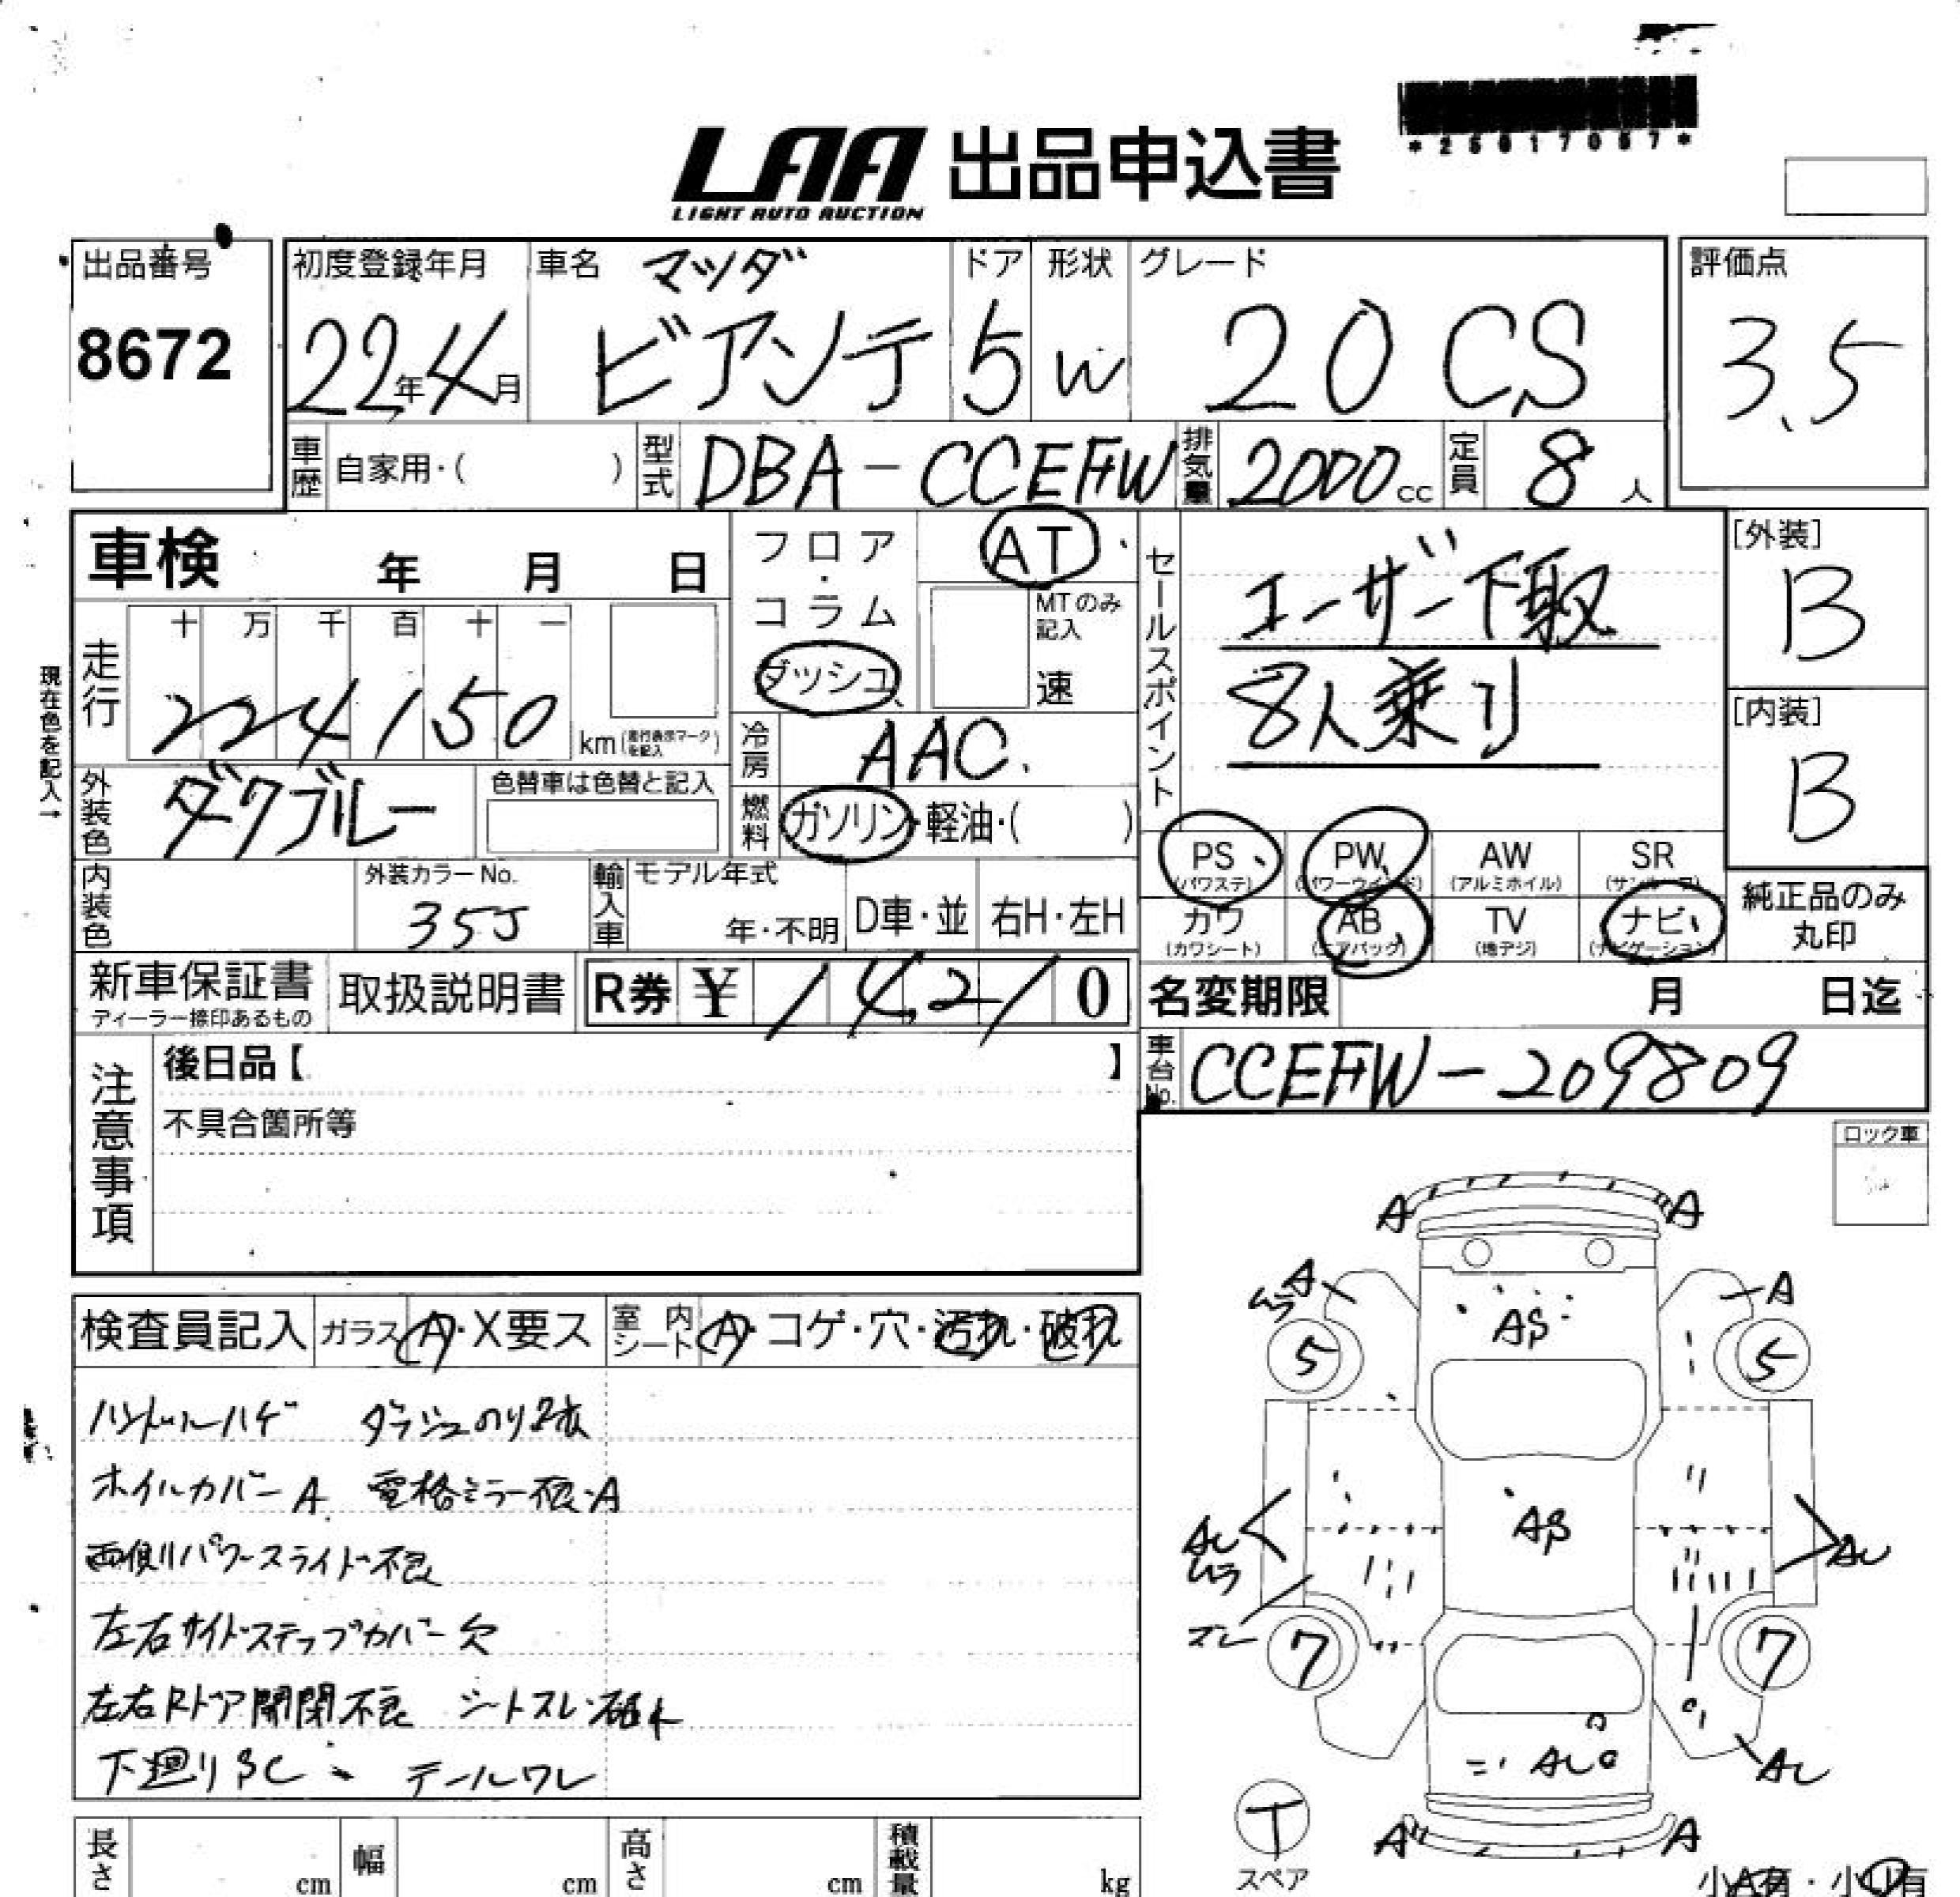 *25017057*
LAA 出品申込書
LIGHT AUTO AUCTION
出品番号
8672
初度登録年月
22年4月
車名 マツダ
ビアンテ
ドア
5
形状
W
グレード
20CS
評価点
3.5
車歴 自家用・( )
型式 DBA-CCEFW
排気量 2000cc
定員 8人
車検 年 月 日
フロア・コラム
ダッシュ
AT
MTのみ記入
速
セールスポイント
ユーザー下取
8人乗り
[外装]
B
[内装]
B
現在色を記入→
走行
十 万 千 百 十 一
224150 km(走行表示マークを記入)
冷房 AAC
外装色 ダクブルー
色替車は色替と記入
燃料 ガソリン・軽油・( )
PS (パワステ)
PW (パワーウインド)
AW (アルミホイル)
SR (サンルーフ)
カワ (カワシート)
AB (エアバッグ)
TV (地デジ)
ナビ (ナビゲーション)
純正品のみ丸印
内装色
外装カラーNo.
35J
輸入車
モデル年式
年・不明
D車・並
右H・左H
新車保証書
ディーラー捺印あるもの
取扱説明書
R券 ¥ 14,210
名変期限 月 日迄
車台No. CCEFW-209809
注意事項
後日品【 】
不具合箇所等
ロック車
検査員記入
ガラス A・X要ス
室内シート A・コゲ・穴・汚れ・破れ
ハンドルハゲ ダッシュのり跡
ホイルカバーA 電格ミラー不良・A
両側パワースライド不良
左右サイドステップカバー欠
左右Rドア開閉不良 シートスレ・破れ
下廻りSC テールワレ
A A
A A
ムラ
AS
5 5
AS
AU AU
ムラ
ズレ
7 7
AU AU
T
スペア
A A
長さ cm
幅 cm
高さ cm
積載量 kg
小A有・小U有